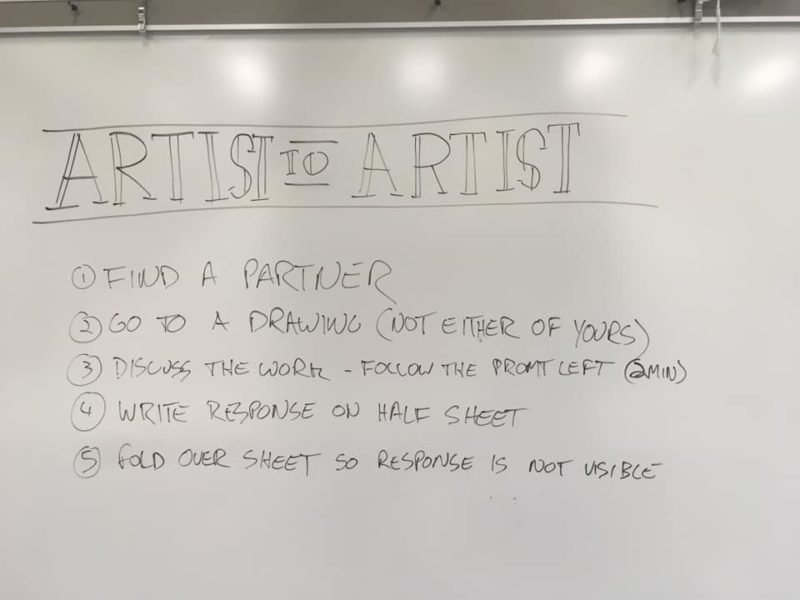 ARTIST TO ARTIST
① FIND A PARTNER
② GO TO A DRAWING (NOT EITHER OF YOURS)
③ DISCUSS THE WORK - FOLLOW THE PROMT LEFT (2MIN)
④ WRITE RESPONSE ON HALF SHEET
⑤ FOLD OVER SHEET SO RESPONSE IS NOT VISIBLE